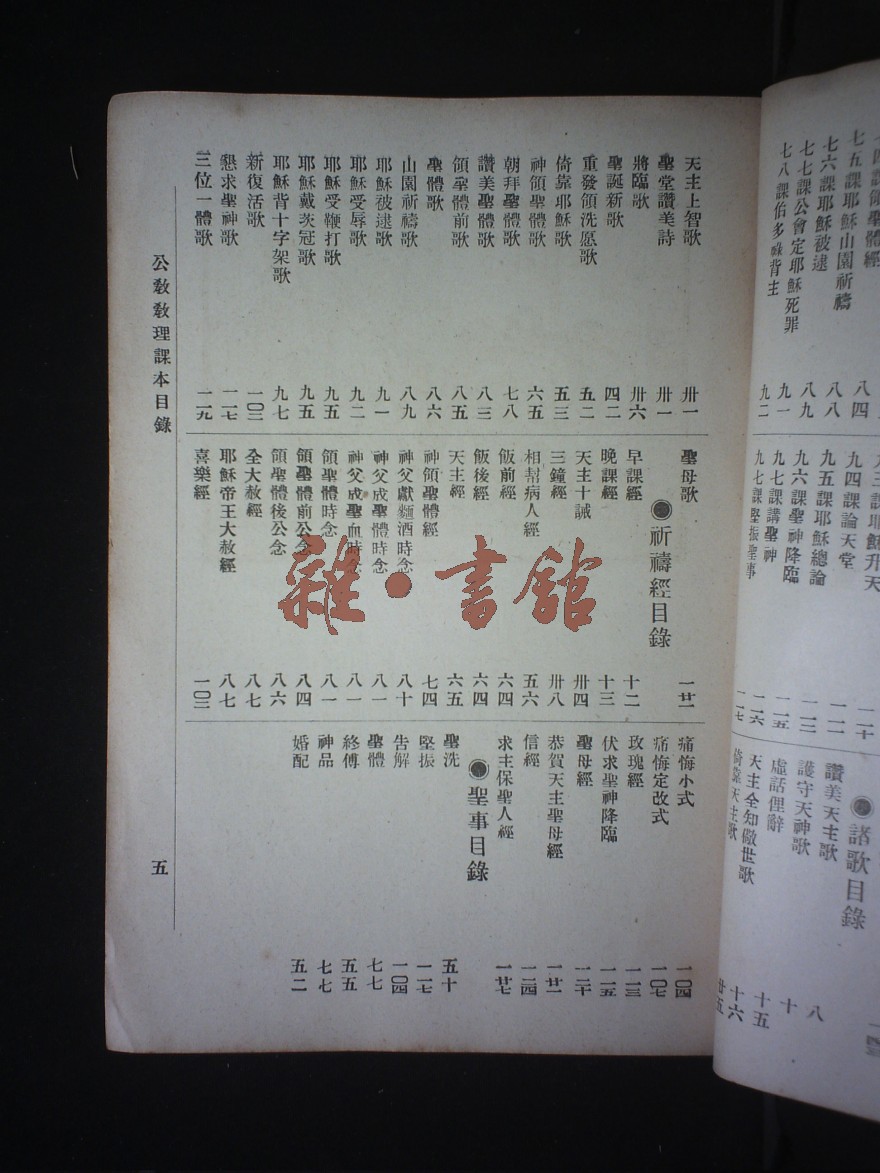 七五課耶穌山園祈禱 八四
七六課耶穌被逮 八八
七七課公會定耶穌死罪 八九
七八課佑多祿背主 九一
九二
九四課論天堂
九五課耶穌總論
九六課聖神降臨
九七課講聖神
九七課堅振聖事
●諸歌目錄
讚美天主歌 八
護守天神歌 十
虛話俚辭 十五
天主全知儆世歌 十六
倚靠天主歌 廿五
天主上智歌 卅一
聖堂讚美詩 卅一
將臨歌 卅六
聖誕新歌 四二
重發領洗愿歌 五二
倚靠耶穌歌 五三
神領聖體歌 六五
朝拜聖體歌 七八
讚美聖體歌 八三
領聖體前歌 八五
聖體歌 八六
山園祈禱歌 八九
耶穌被逮歌 九一
耶穌受辱歌 九二
耶穌受鞭打歌 九五
耶穌戴茨冠歌 九五
耶穌背十字架歌 九七
新復活歌 一〇三
懇求聖神歌 一一七
三位一體歌 一一九
聖母歌 一廿一
●祈禱經目錄
早課經 十二
晚課經 十三
天主十誡 卅四
三鐘經 卅八
相幇病人經 五六
飯前經 六四
飯後經 六四
天主經 六五
神領聖體經 七四
神父獻麵酒時念 八十
神父成聖體時念 八一
神父成聖血時念 八一
領聖體時念 八一
領聖體前公念 八四
領聖體後公念 八六
全大赦經 八七
耶穌帝王大赦經 八七
喜樂經 一〇三
痛悔小式 一〇四
痛悔定改式 一〇七
玫瑰經 一一三
伏求聖神降臨 一一五
聖母經 一二十
恭賀天主聖母經 一廿一
信經 一二四
求主保聖人經 一廿七
●聖事目錄
聖洗 五十
堅振 一一七
吿解 一〇四
聖體 七七
終傅 五五
神品 七七
婚配 五二
公教教理課本目錄 五
雜·書館